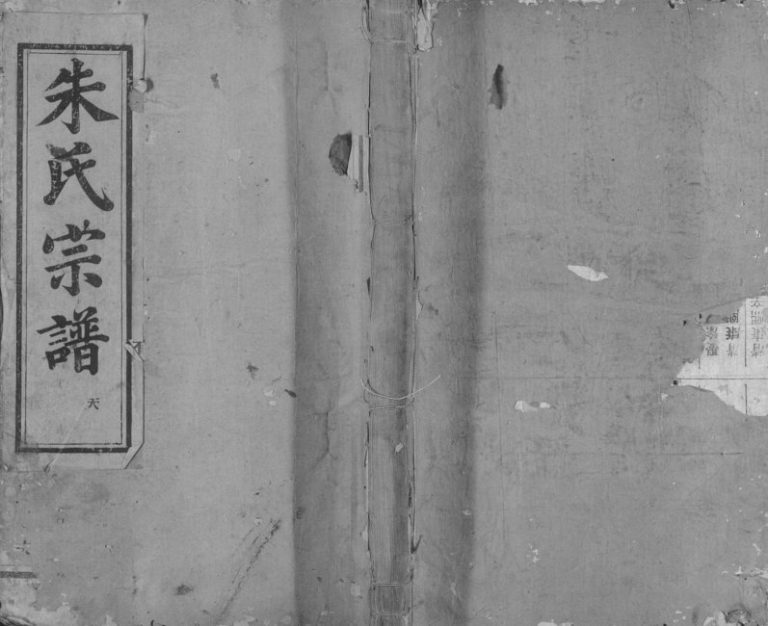 朱氏宗譜
天